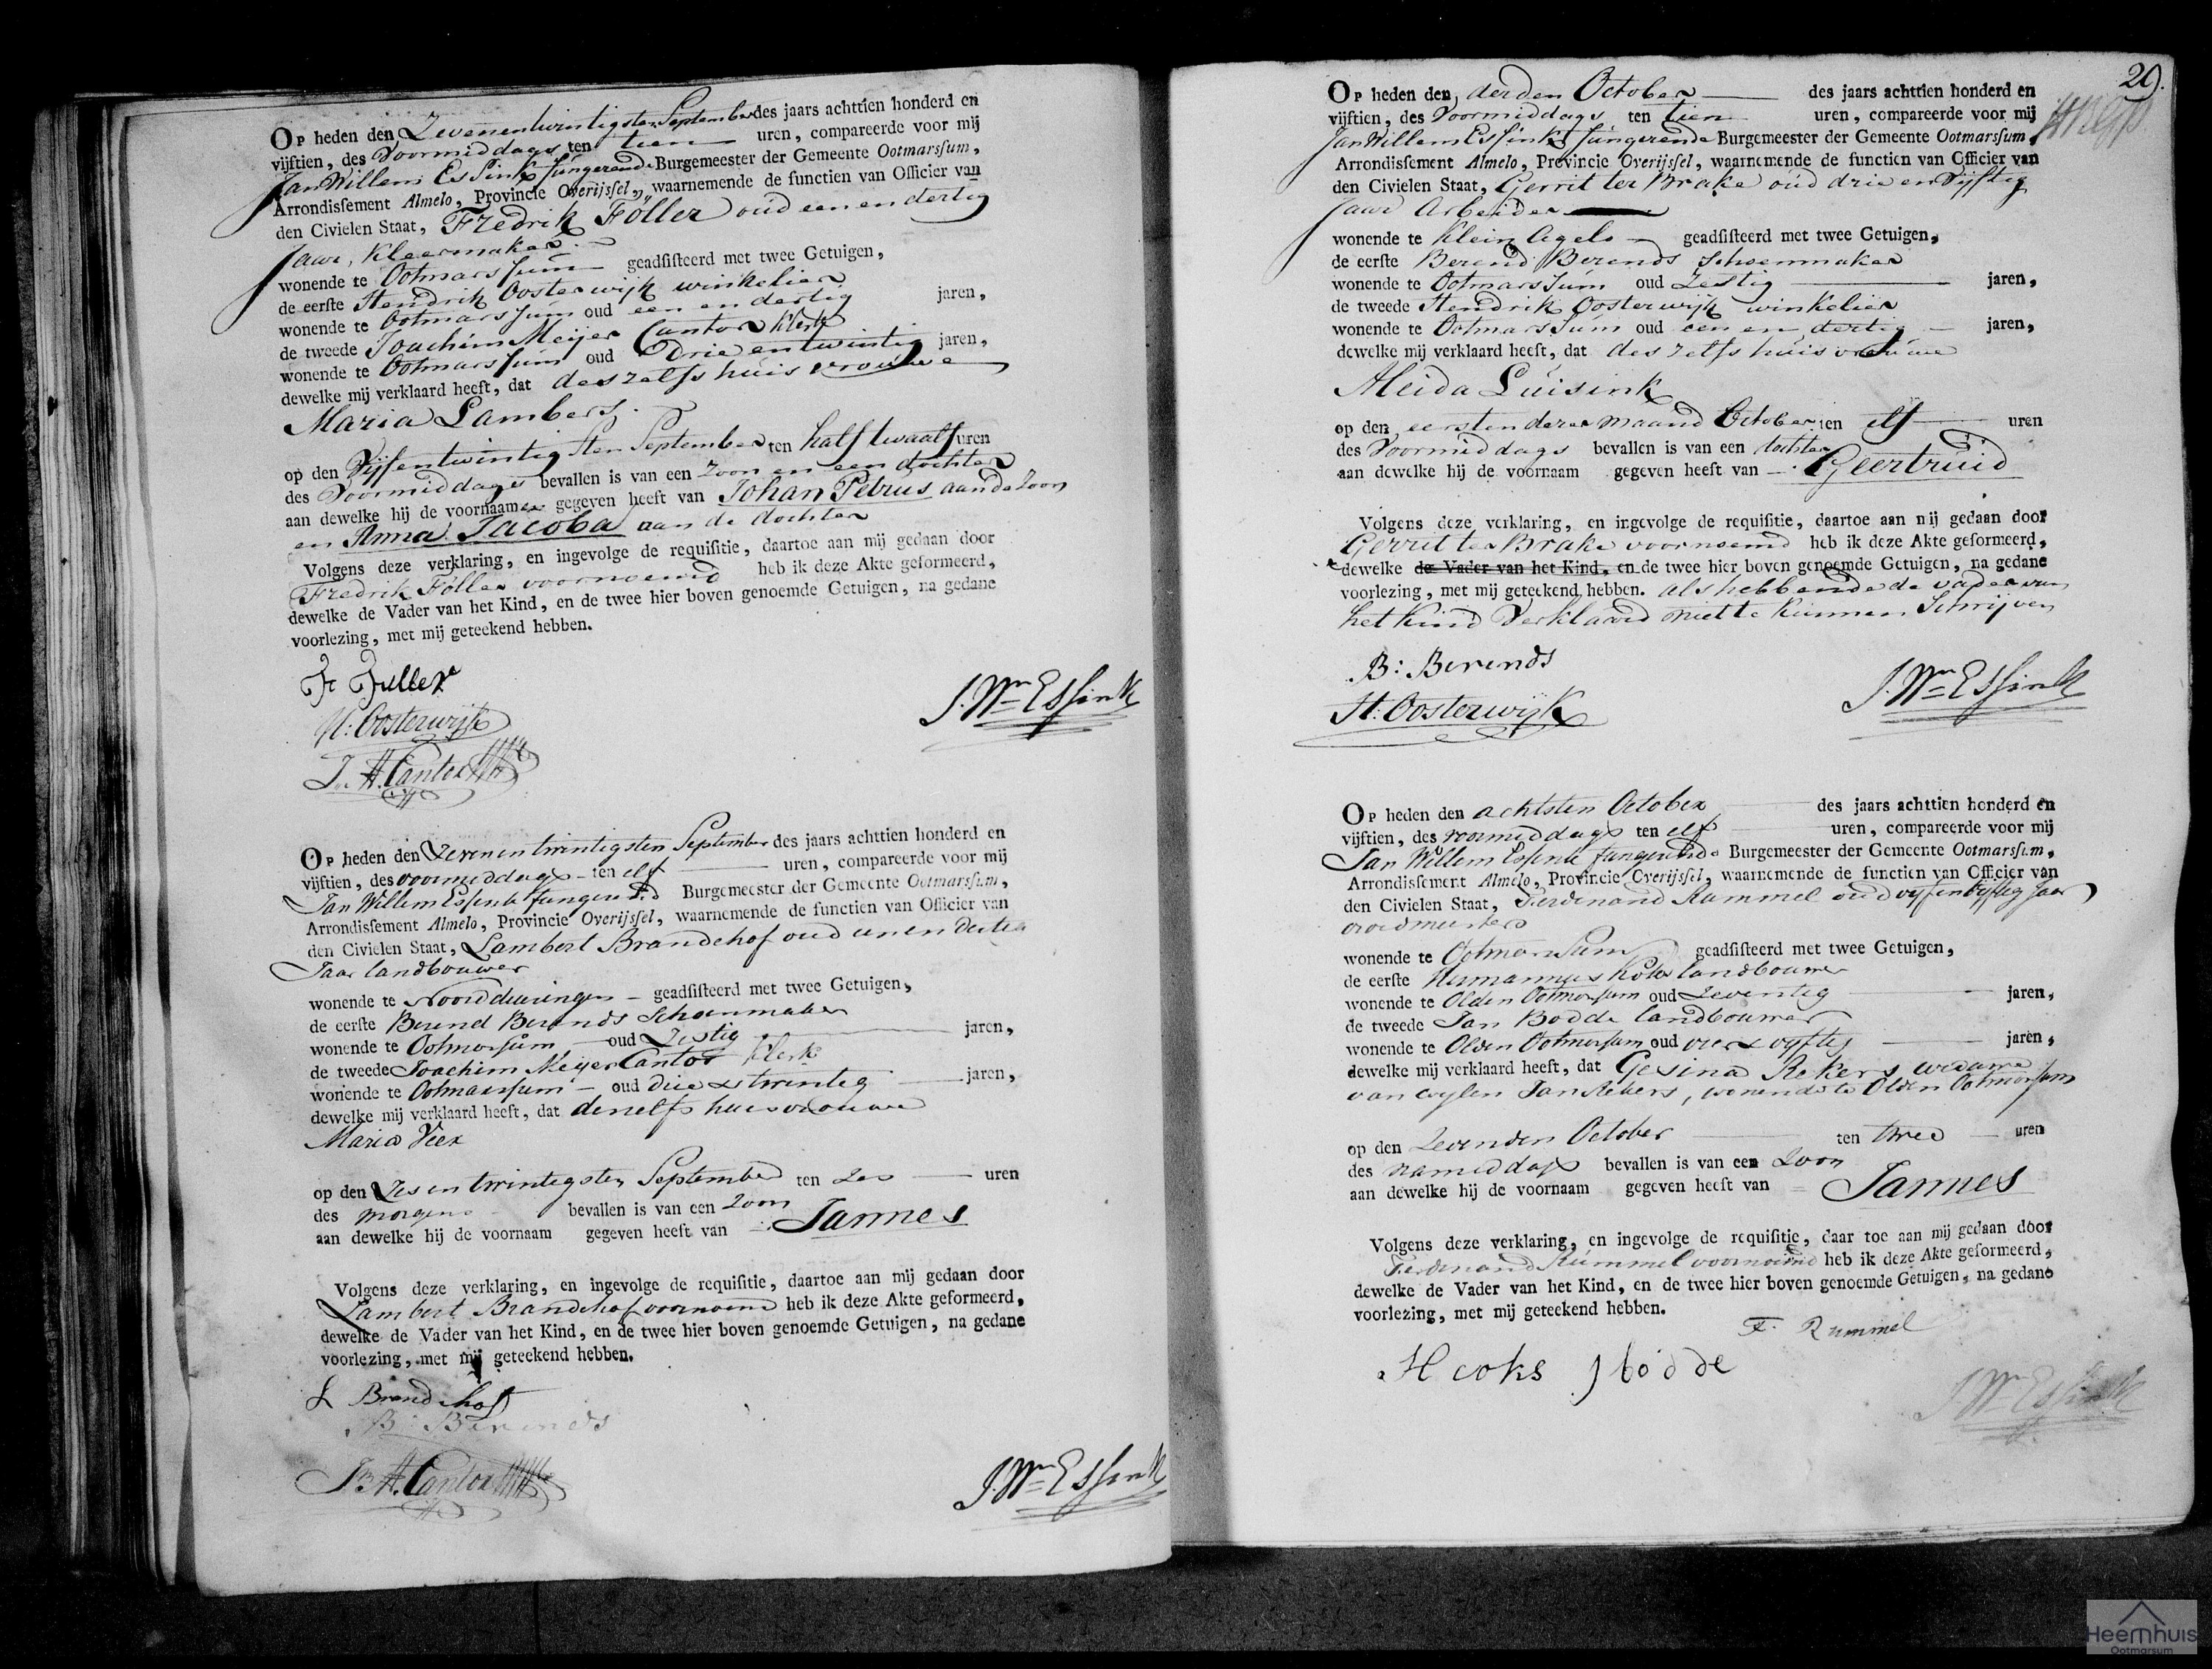 Op heden den Zevenentwintigsten September des jaars achttien honderd en
vijftien, des Voormiddags ten tien uren, compareerde voor mij
Jan Willem Essink fungerende Burgemeester der Gemeente Ootmarssum,
Arrondissement Almelo, Provincie Overijssel, waarnemende de functien van Officier van
den Civielen Staat, Fredrik Föller oud een en dertig
Jaar, Kleermaker
wonende te Ootmarssum geadsisteerd met twee Getuigen,
de eerste Hendrik Oosterwijk winkelier
wonende te Ootmarssum oud een en dertig jaren,
de tweede Joachim Meijer Cantor Klerk
wonende te Ootmarssum oud Drie en twintig jaren,
dewelke mij verklaard heeft, dat deszelfs huisvrouwe
Maria Lambers
op den Vijfentwintigsten September ten half twaalf uren
des Voormiddags bevallen is van een zoon en een dochter
aan dewelke hij de voornaamen gegeven heeft van Johan Petrus aan de Zoon
en Anna Jacoba aan de dochter
Volgens deze verklaring, en ingevolge de requisitie, daartoe aan mij gedaan door
Fredrik Föller voornoemd heb ik deze Akte geformeerd,
dewelke de Vader van het Kind, en de twee hier boven genoemde Getuigen, na gedane
voorlezing, met mij geteekend hebben.
F Fuller
J. Wm Essink
H: Oosterwijk
J. H. Cantor
Op heden den Zevenentwintigsten September des jaars achttien honderd en
vijftien, des voormiddags ten elf uren, compareerde voor mij
Jan Willem Essink fungerend Burgemeester der Gemeente Ootmarssum,
Arrondissement Almelo, Provincie Overijssel, waarnemende de functien van Officier van
den Civielen Staat, Lambert Brandehof oud een en dertig
Jaar landbouwer
wonende te Noord deuringen geadsisteerd met twee Getuigen,
de eerste Berend Berends Schoenmaker
wonende te Ootmarssum oud Zestig jaren,
de tweede Joachim Meijer Cantor Klerk
wonende te Ootmarssum oud drie & twintig jaren,
dewelke mij verklaard heeft, dat deszelfs huisvrouwe
Maria Veer
op den Zes en twintigsten September ten zes uren
des morgens bevallen is van een Zoon
aan dewelke hij de voornaam gegeven heeft van Jannes
Volgens deze verklaring, en ingevolge de requisitie, daartoe aan mij gedaan door
Lambert Brandehof voornoemd heb ik deze Akte geformeerd,
dewelke de Vader van het Kind, en de twee hier boven genoemde Getuigen, na gedane
voorlezing, met mij geteekend hebben.
L Brandehof
B: Berends
J. H. Cantor
J. Wm Essink
20.
Op heden den derden October des jaars achttien honderd en
vijftien, des Voormiddags ten tien uren, compareerde voor mij
Jan Willem Essink fungerende Burgemeester der Gemeente Ootmarssum,
Arrondissement Almelo, Provincie Overijssel, waarnemende de functien van Officier van
den Civielen Staat, Gerrit ter Brake oud drie en Vijftig
Jaar Arbeider
wonende te Klein Agelo geadsisteerd met twee Getuigen,
de eerste Berend Berends Schoenmaker
wonende te Ootmarssum oud Zestig jaren,
de tweede Hendrik Oosterwijk winkelier
wonende te Ootmarssum oud een en dertig jaren,
dewelke mij verklaard heeft, dat deszelfs huisvrouwe
Aleida Luisink
op den eersten dezer maand October ten elf uren
des Voormiddags bevallen is van een dochter
aan dewelke hij de voornaam gegeven heeft van Geertruid
Volgens deze verklaring, en ingevolge de requisitie, daartoe aan mij gedaan door
Gerrit ter Brake voornoemd heb ik deze Akte geformeerd,
dewelke de Vader van het Kind, en de twee hier boven genoemde Getuigen, na gedane
voorlezing, met mij geteekend hebben. als hebbende de vader van
het Kind Verklaard niet te kunnen Schrijven
B: Berends
J. Wm Essink
H: Oosterwijk
Op heden den achtsten October des jaars achttien honderd en
vijftien, des voormiddags ten elf uren, compareerde voor mij
Jan Willem Essink fungerende Burgemeester der Gemeente Ootmarssum,
Arrondissement Almelo, Provincie Overijssel, waarnemende de functien van Officier van
den Civielen Staat, Ferdinand Rummel oud vijfenvijftig Jaar
vroedmeester
wonende te Ootmarssum geadsisteerd met twee Getuigen,
de eerste Hermannus Koks landbouwer
wonende te Olden Ootmarssum oud Zeventig jaren,
de tweede Jan Bodde landbouwer
wonende te Olden Ootmarssum oud vier & vyftig jaren,
dewelke mij verklaard heeft, dat Gesina Rekers weduwe
van wylen Jan Rekers, wonende te Olden Ootmarssum
op den Zevenden October ten twee uren
des namiddags bevallen is van een Zoon
aan dewelke hij de voornaam gegeven heeft van Jannes
Volgens deze verklaring, en ingevolge de requisitie, daar toe aan mij gedaan door
Ferdinand Rummel voornoemd heb ik deze Akte geformeerd,
dewelke de Vader van het Kind, en de twee hier boven genoemde Getuigen, na gedane
voorlezing, met mij geteekend hebben.
F. Rummel
H coks J bodde
J. Wm Essink
Heemhuis
Ootmarsum